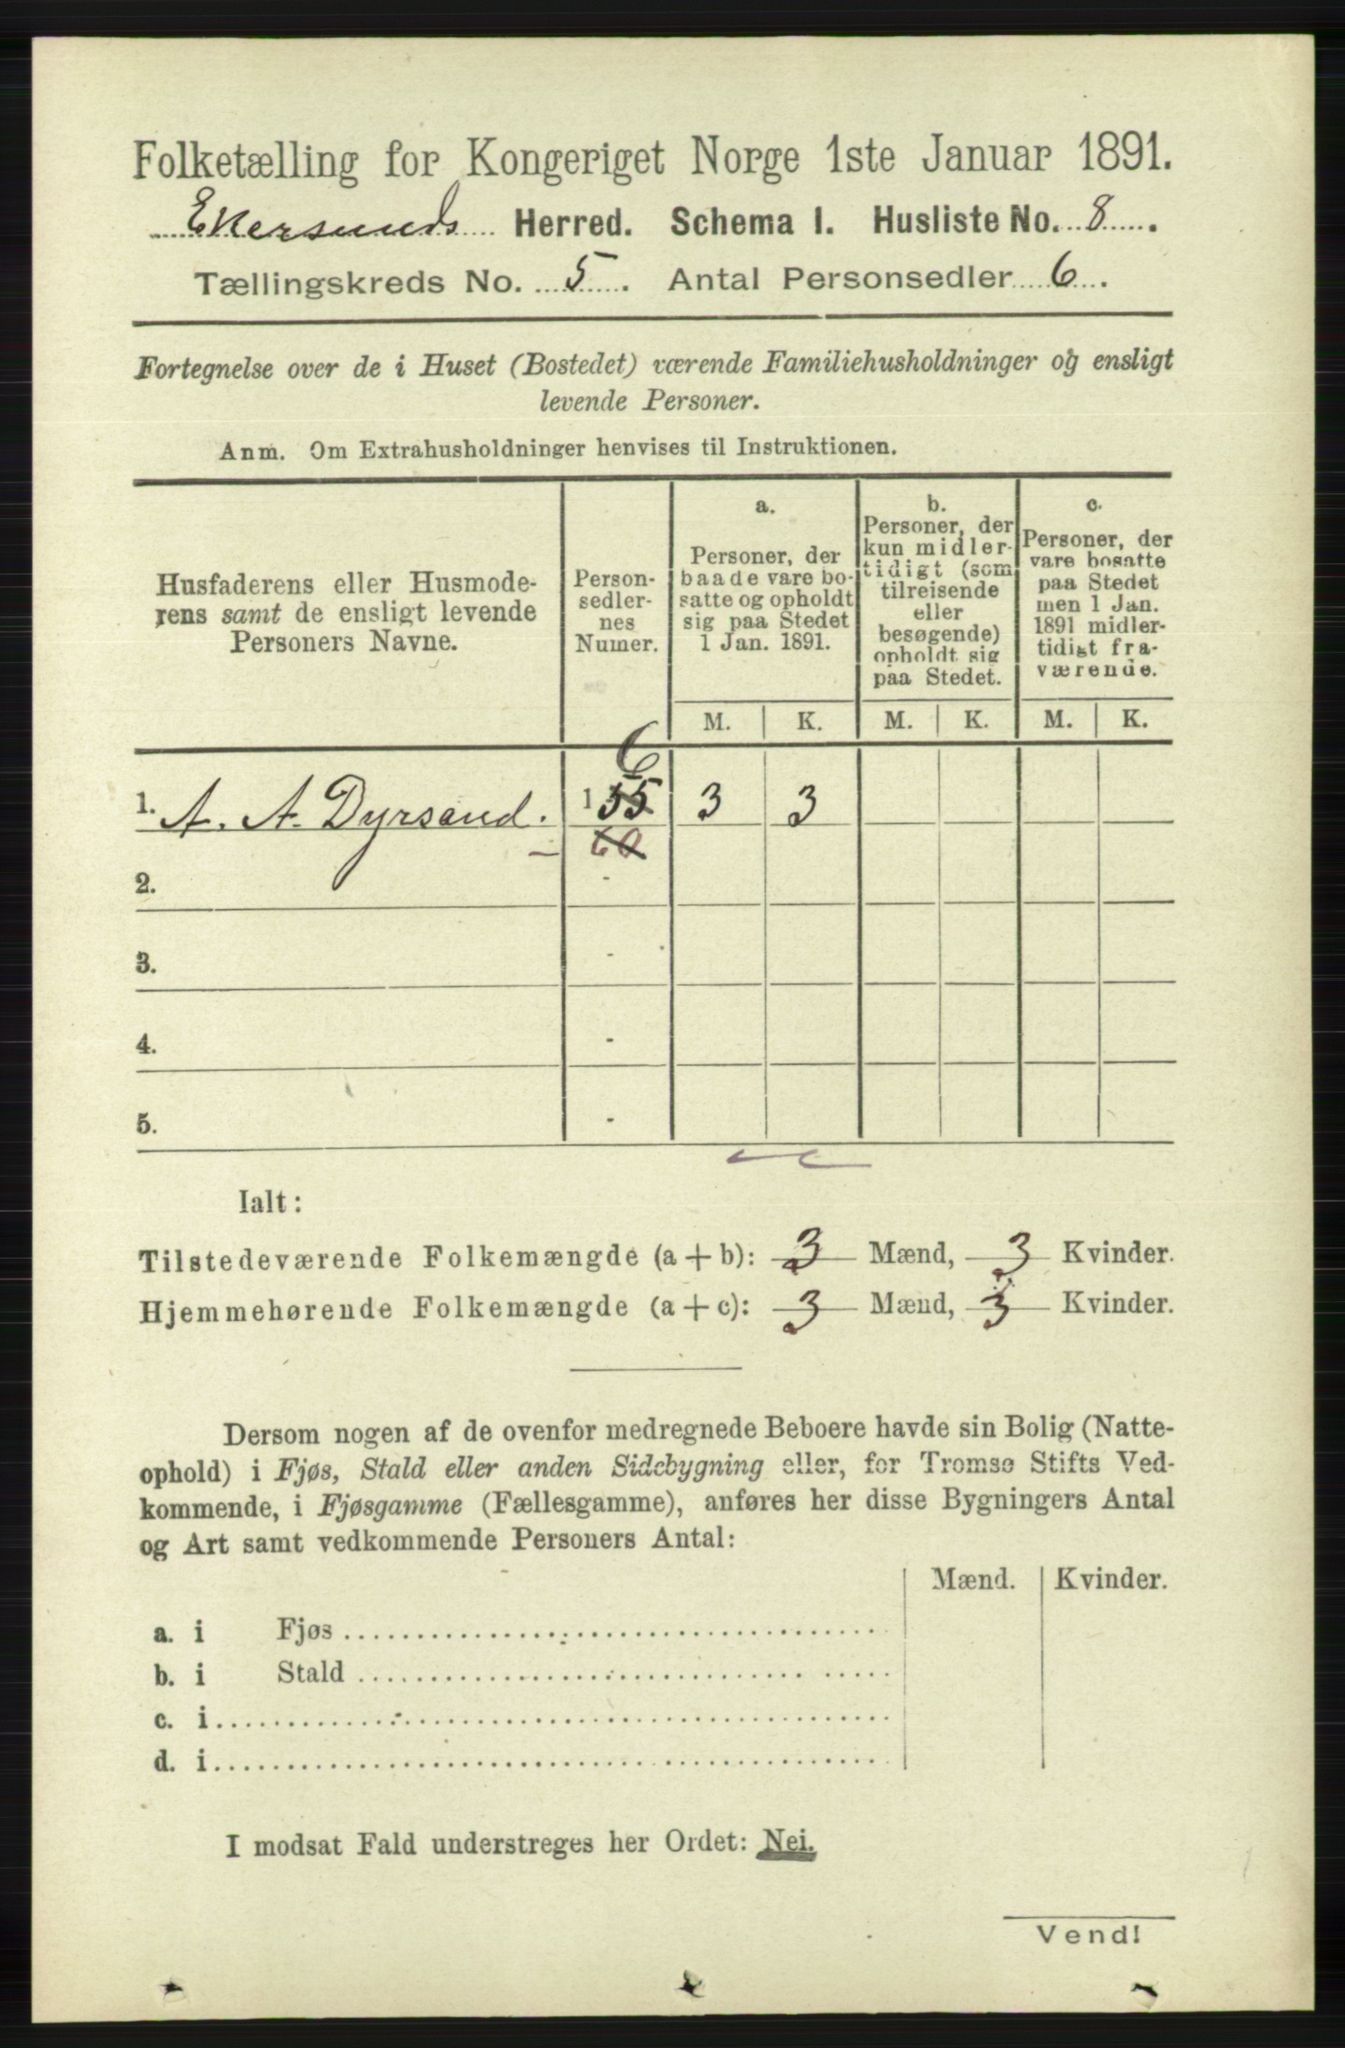 Folketælling for Kongeriget Norge 1ste Januar 1891.
Ekersunds Herred. Schema I. Husliste No. 8.
Tællingskreds No. 5. Antal Personsedler 6.
Fortegnelse over de i Huset (Bostedet) værende Familiehusholdninger og ensligt
levende Personer.
Anm. Om Extrahusholdninger henvises til Instruktionen.
Husfaderens eller Husmode-
rens samt de ensligt levende
Personers Navne.
Person-
sedler-
nes
Numer.
a.
Personer, der
baade vare bo-
satte og opholdt
sig paa Stedet
1 Jan. 1891.
b.
Personer, der
kun midler-
tidigt (som
tilreisende
eller
besøgende)
opholdt sig
paa Stedet.
c.
Personer, der
vare bosatte
paa Stedet
men 1 Jan.
1891 midler-
tidigt fra-
værende.
M. K. M. K. M. K.
6
1. A. A. Dyrsand. 1 55 3 3
- 60
2. -
3. -
4. -
5. -
Ialt:
Tilstedeværende Folkemængde (a + b): 3 Mænd, 3 Kvinder.
Hjemmehørende Folkemængde (a + c): 3 Mænd, 3 Kvinder.
Dersom nogen af de ovenfor medregnede Beboere havde sin Bolig (Natte-
ophold) i Fjøs, Stald eller anden Sidebygning eller, for Tromsø Stifts Ved-
kommende, i Fjøsgamme (Fællesgamme), anføres her disse Bygningers Antal
og Art samt vedkommende Personers Antal:
Mænd. Kvinder.
a. i Fjøs
b. i Stald
c. i
d. i
I modsat Fald understreges her Ordet: Nei.
Vend!